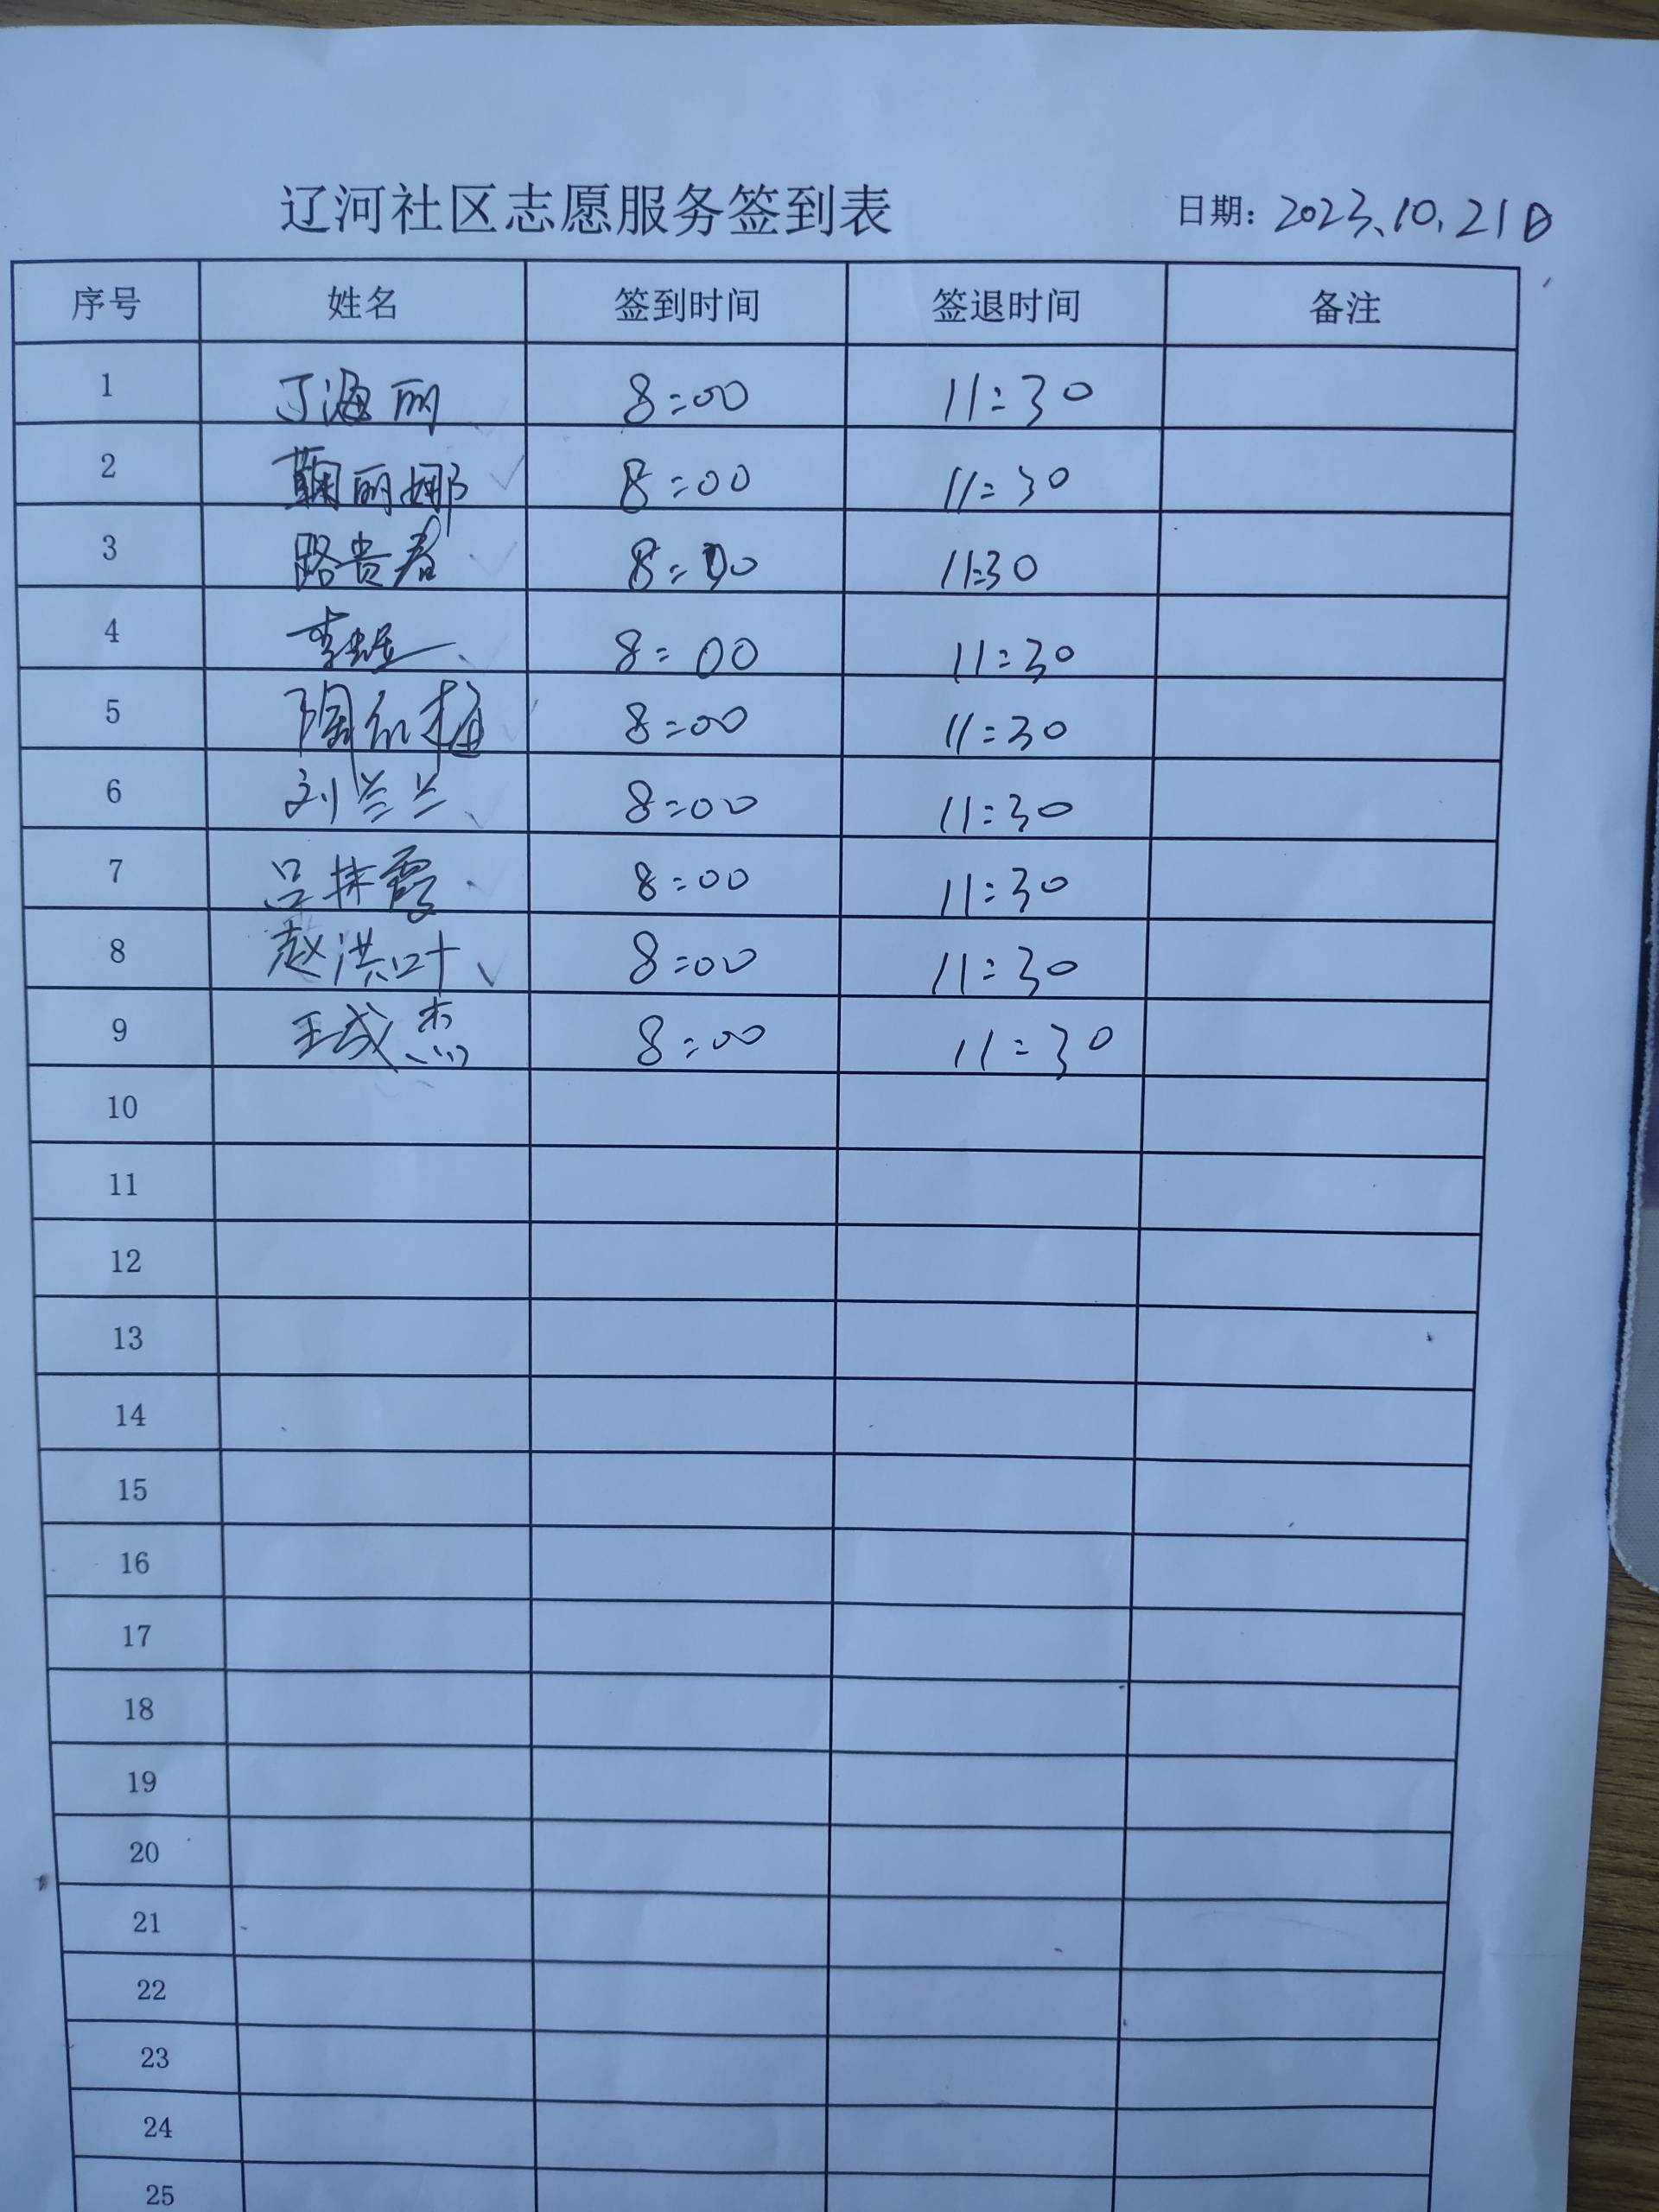 辽河社区志愿服务签到表 日期: 2023.10.21日
序号 姓名 签到时间 签退时间 备注
1 丁海丽 8:00 11:30
2 鞠丽娜 8:00 11:30
3 路贵春 8:00 11:30
4 8:00 11:30
5 陶红梅 8:00 11:30
6 刘兰兰 8:00 11:30
7 吕抹霞 8:00 11:30
8 赵洪叶 8:00 11:30
9 王成杰 8:00 11:30
10
11
12
13
14
15
16
17
18
19
20
21
22
23
24
25